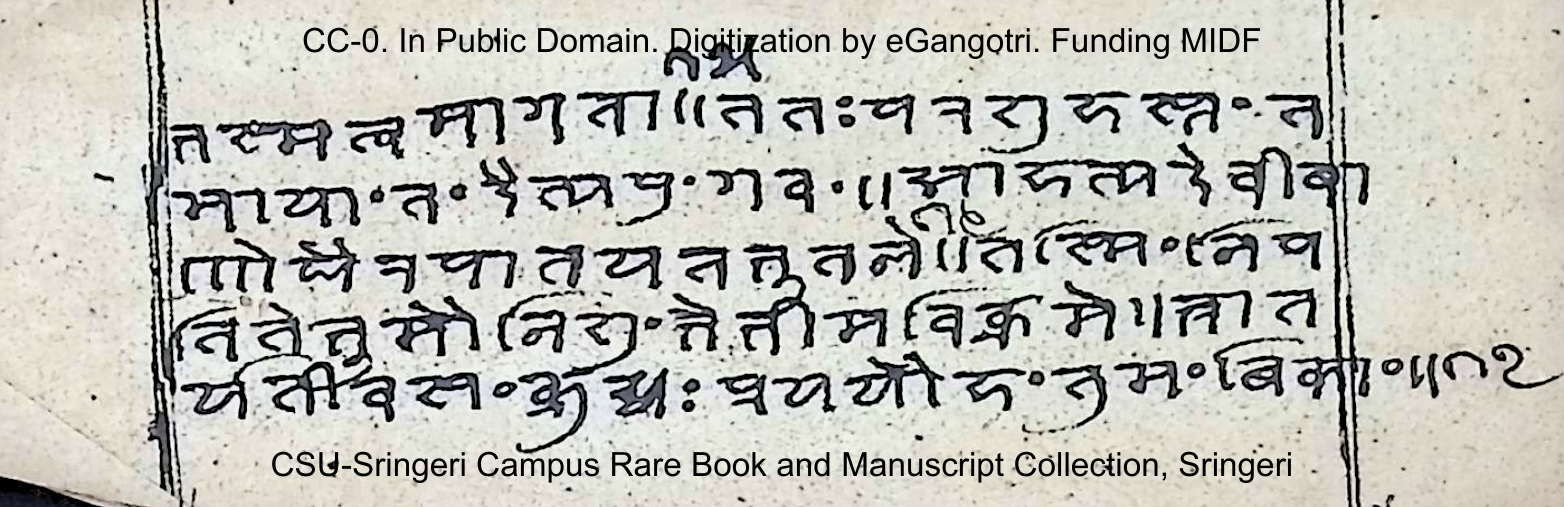 CC-0. In Public Domain. Digitization by eGangotri. Funding MIDF
भस्मत्वमागता॥ततःपरशुहस्तंत
मायांतंदैत्यपुंगवं॥आहत्यदेवीबा
णौघैरपातयतभूतले॥तस्मिंनिप
तितेभूमौनिशुंभेभीमविक्रमे॥भ्रात
र्यतीवसंक्रुद्धःप्रययौहंतुमंबिकां॥
CSU-Sringeri Campus Rare Book and Manuscript Collection, Sringeri